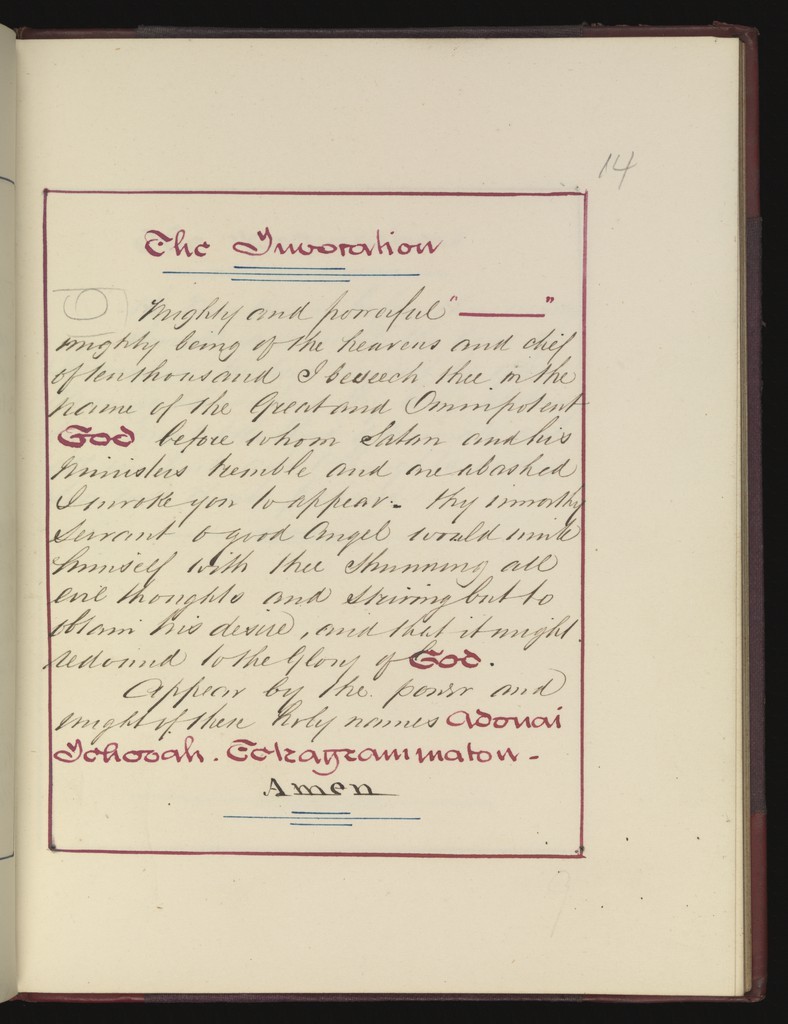 14
The Invocation
O Mighty and powerful "———"
mighty being of the heavens and chief
of ten thousand I beseech thee in the
name of the Great and Omnipotent
God before whom Satan and his
Ministers tremble and are abashed
I invoke you to appear. Thy unworthy
Servant & good Angel would unite
himself with thee Shunning all
evil thoughts and Striving but to
obtain his desire, and that it might
redound to the Glory of God.
Appear by the power and
might of these holy names Adonai
Jehovah. Tetragrammaton -
Amen